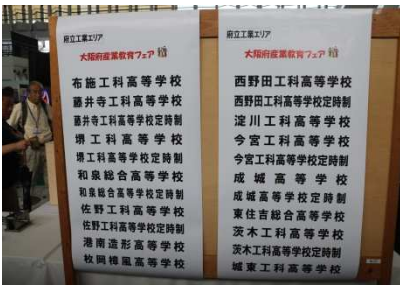 府立工業エリア
大阪府産業教育フェア
布施工科高等学校
藤井寺工科高等学校
藤井寺工科高等学校定時制
堺工科高等学校
堺工科高等学校定時制
和泉総合高等学校
和泉総合高等学校定時制
佐野工科高等学校
佐野工科高等学校定時制
港南造形高等学校
枚岡樟風高等学校
府立工業エリア
大阪府産業教育フェア
西野田工科高等学校
西野田工科高等学校定時制
淀川工科高等学校
今宮工科高等学校
今宮工科高等学校定時制
成城高等学校
成城高等学校定時制
東住吉総合高等学校
茨木工科高等学校
茨木工科高等学校定時制
城東工科高等学校